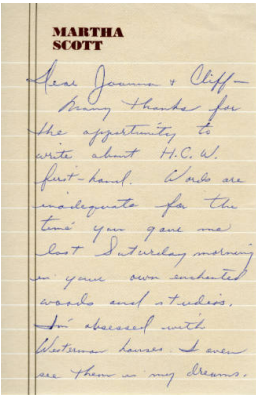 MARTHA
SCOTT
Dear Joanna & Cliff—
Many thanks for
the opportunity to
write about H.C.W.
first-hand. Words are
inadequate for the
time you gave me
last Saturday morning
in your own enchanted
woods and studios.
I'm obsessed with
Westerman houses. I even
see them in my dreams.